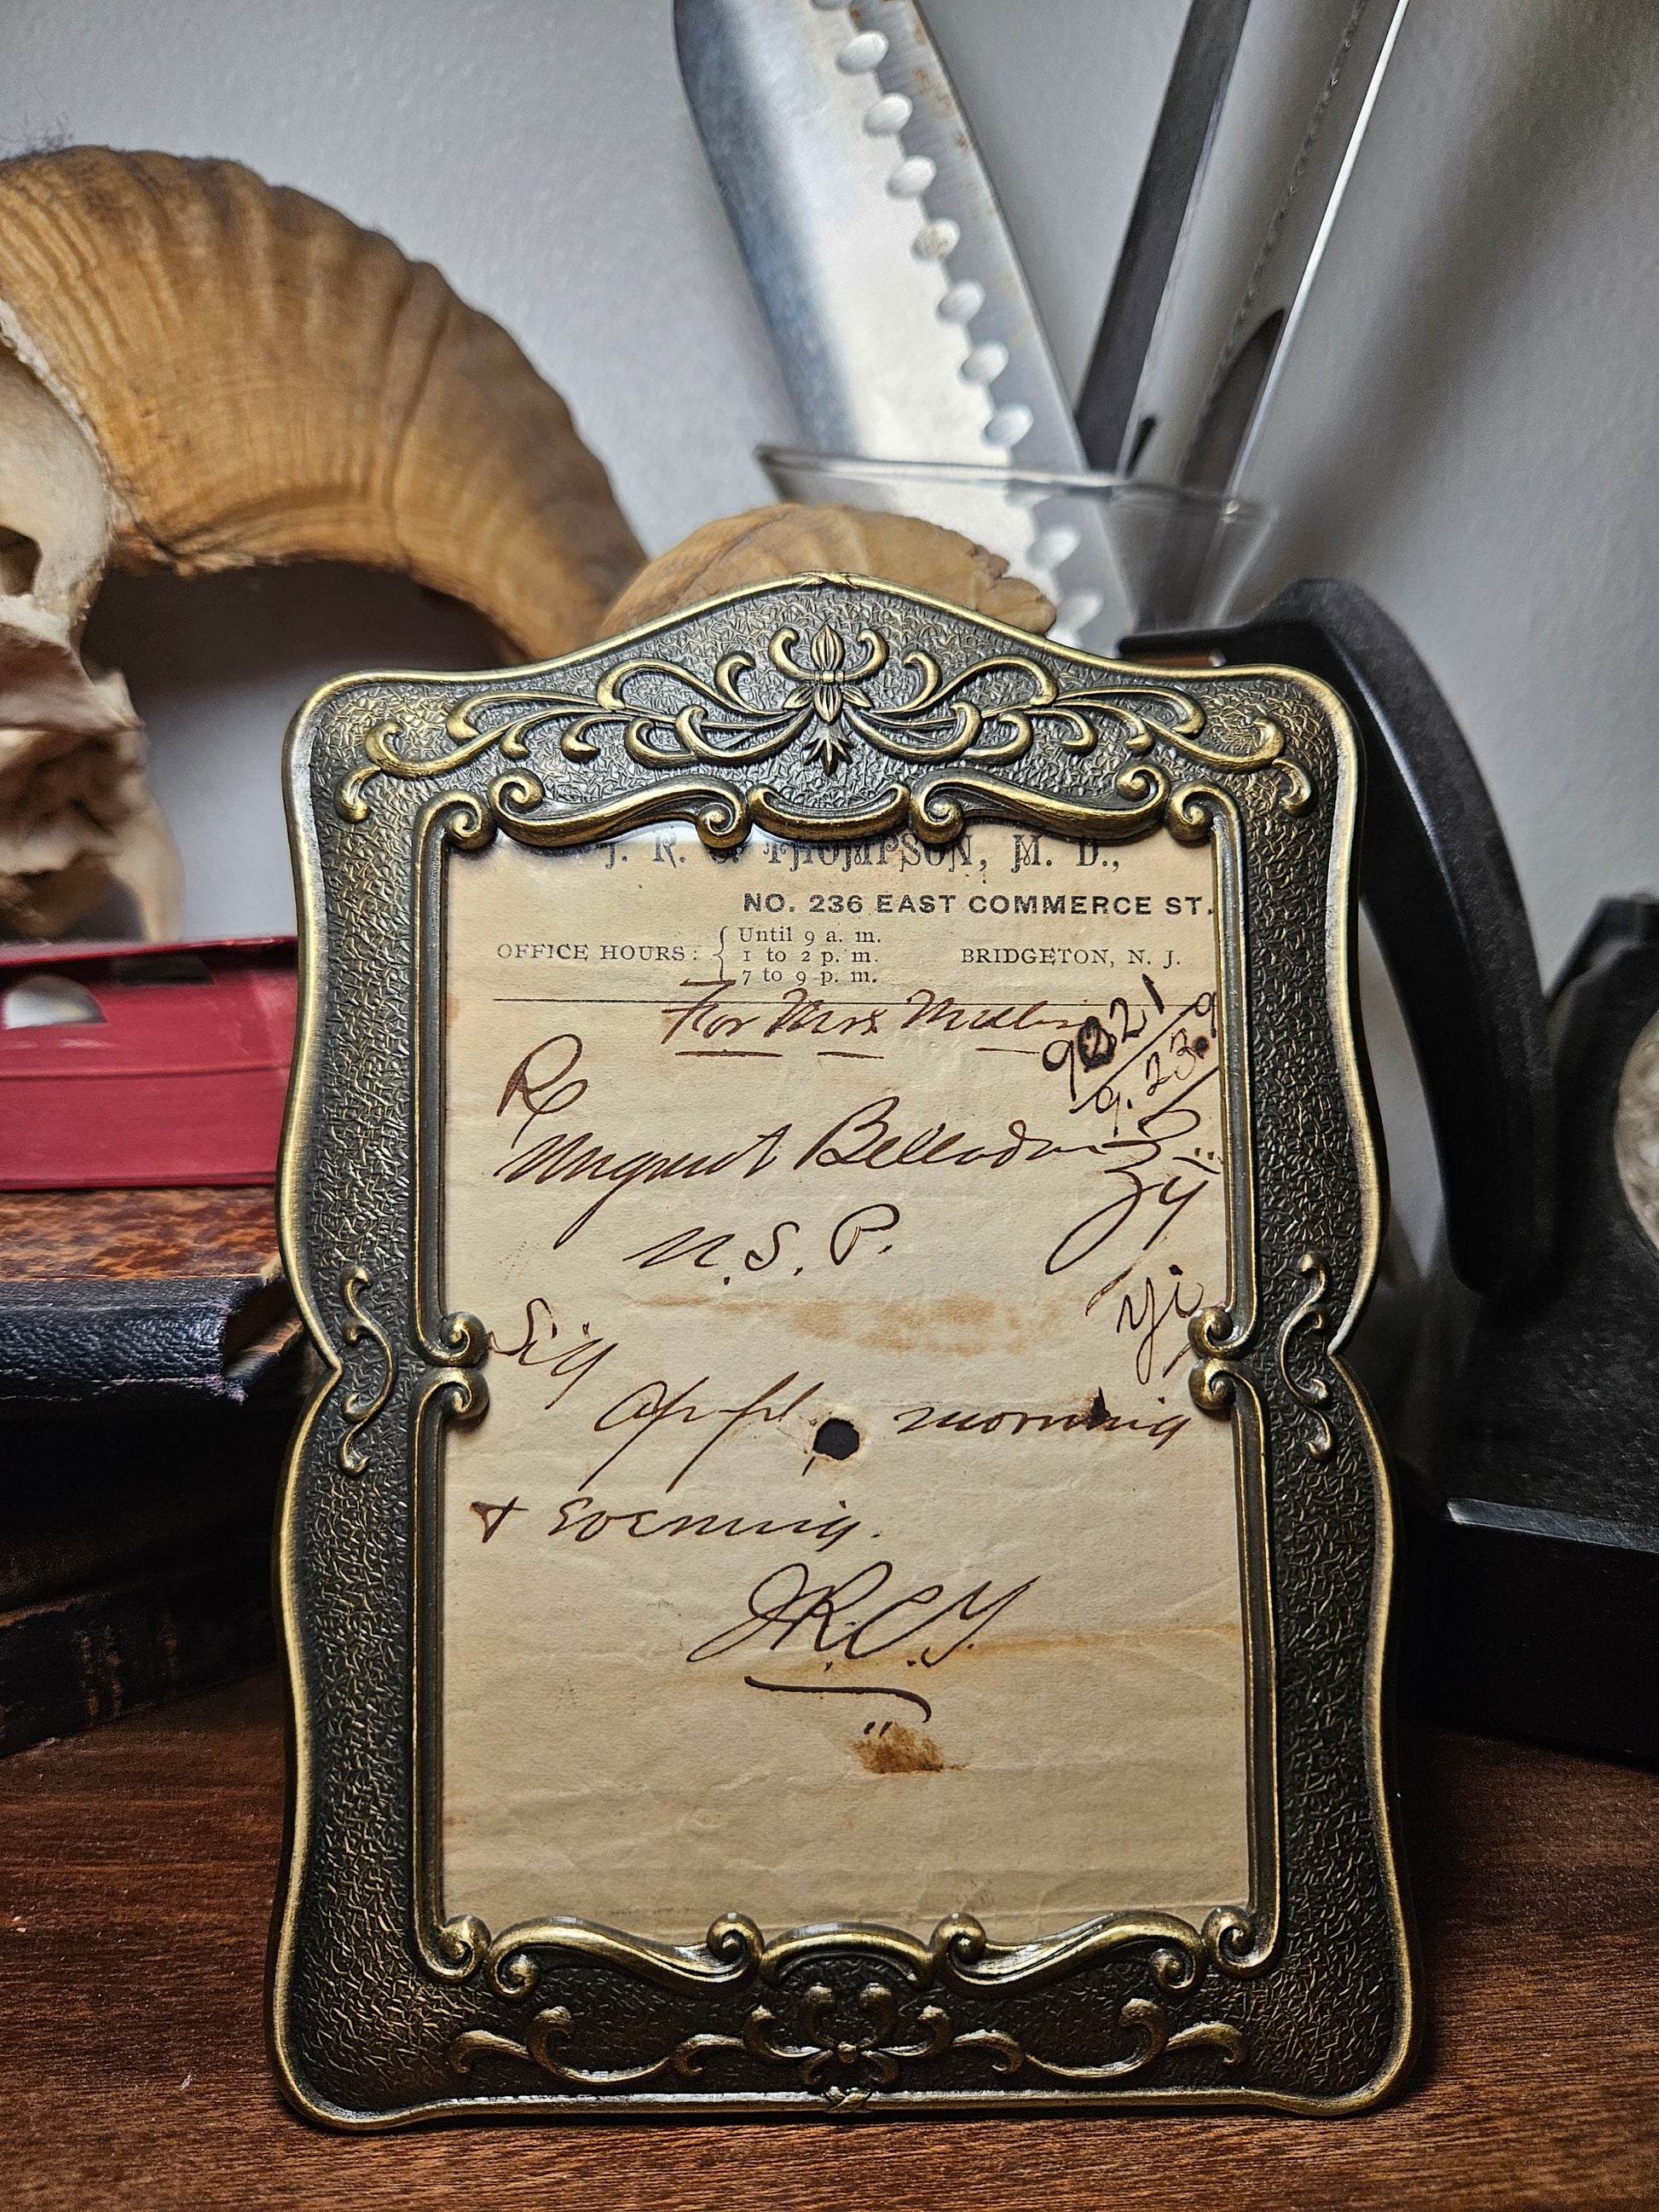 J. R. C. THOMPSON, M. D.,
NO. 236 EAST COMMERCE ST.
OFFICE HOURS: { Until 9 a. m.
1 to 2 p. m.
7 to 9 p. m.
BRIDGETON, N. J.
For Mrs
9.23.9
Rx
Unguent Bellad
N.S.P.
Sig
Appl morning
+ Evening.
J.R.C.T.